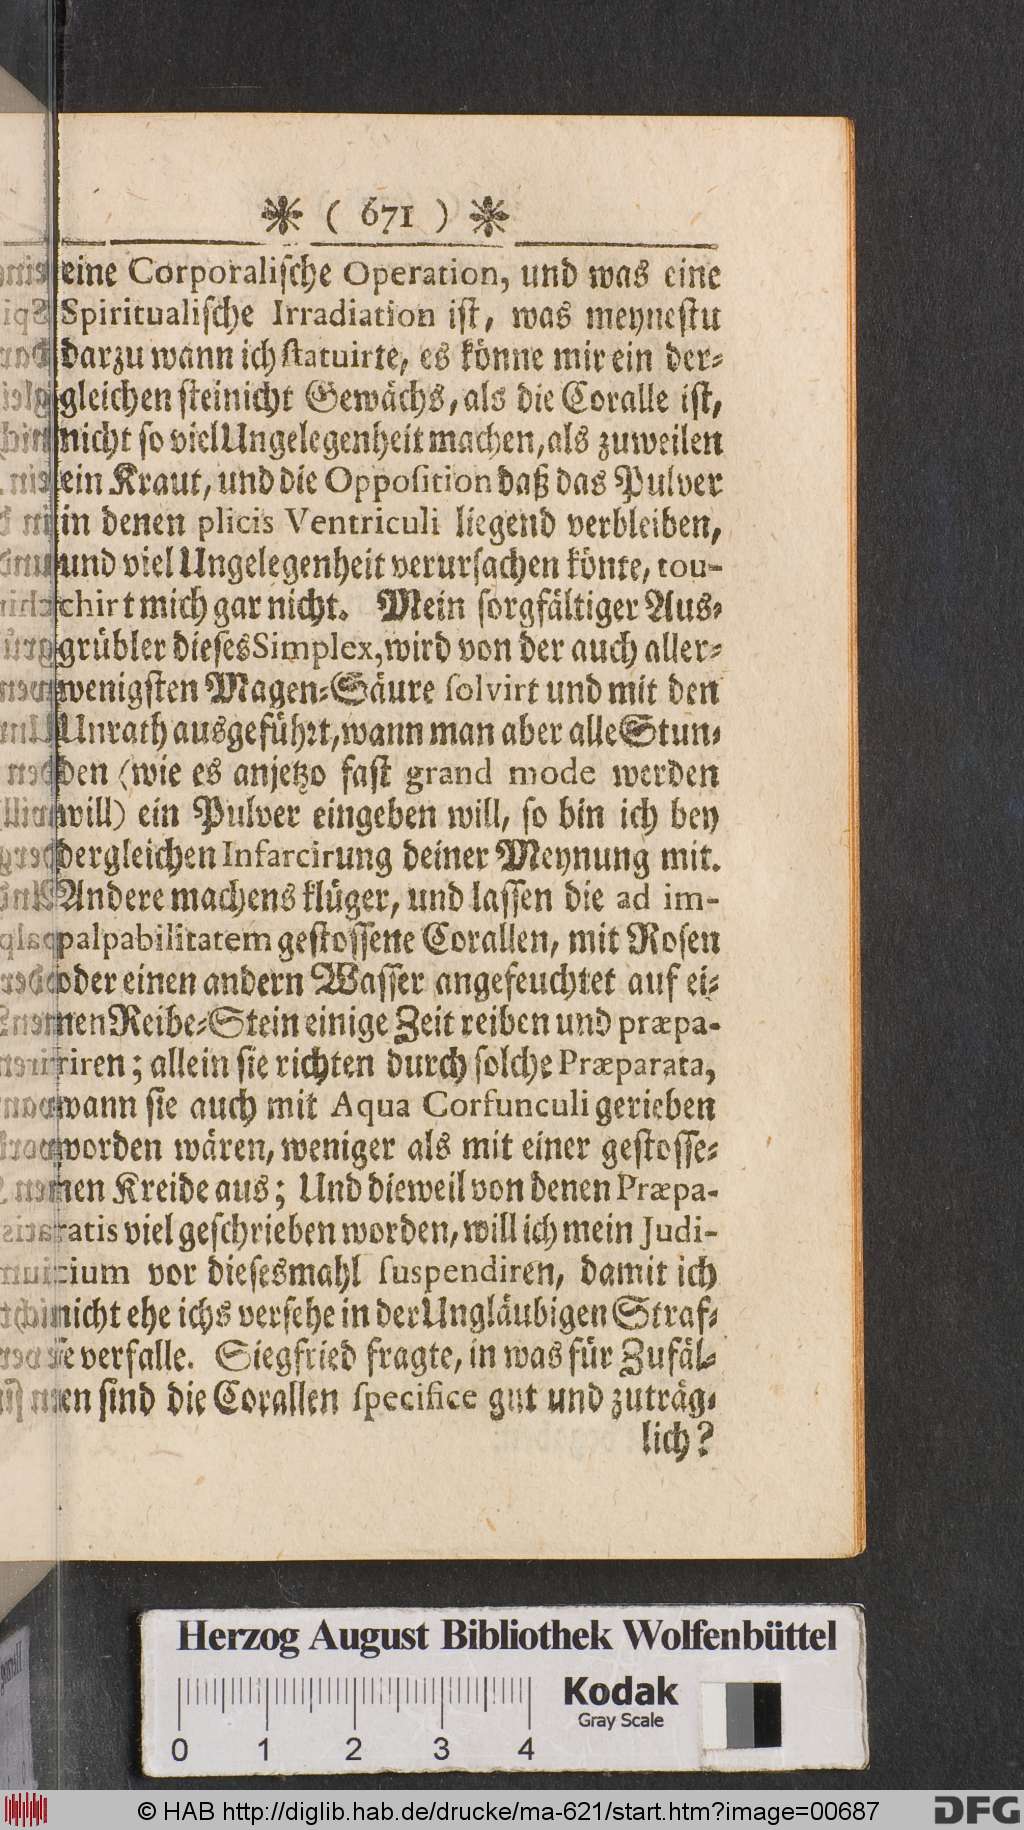 * ( 671 ) *
eine Corporalische Operation, und was eine
Spiritualische Irradiation ist, was meynestu
darzu wann ich statuirte, es könne mir ein der-
gleichen steinicht Gewächs, als die Coralle ist,
nicht so viel Ungelegenheit machen, als zuweilen
ein Kraut, und die Opposition daß das Pulver
in denen plicis Ventriculi liegend verbleiben,
und viel Ungelegenheit verursachen könte, tou-
chirt mich gar nicht. Mein sorgfältiger Aus-
grübler dieses Simplex, wird von der auch aller-
wenigsten Magen-Säure solvirt und mit den
Unrath ausgeführt, wann man aber alle Stun-
den (wie es anjetzo fast grand mode werden
will) ein Pulver eingeben will, so bin ich bey
dergleichen Infarcirung deiner Meynung mit.
Andere machens klüger, und lassen die ad im-
palpabilitatem gestossene Corallen, mit Rosen
oder einen andern Wasser angefeuchtet auf ei-
nen Reibe-Stein einige Zeit reiben und præpa-
riren; allein sie richten durch solche Præparata,
wann sie auch mit Aqua Corfunculi gerieben
worden wären, weniger als mit einer gestosse-
nen Kreide aus; Und dieweil von denen Præpa-
ratis viel geschrieben worden, will ich mein Judi-
cium vor diesesmahl suspendiren, damit ich
nicht ehe ichs versehe in der Ungläubigen Straf-
fe verfalle. Siegfried fragte, in was für Zufäl-
len sind die Corallen specifice gut und zuträg-
lich?
Herzog August Bibliothek Wolfenbüttel
Kodak
Gray Scale
0 1 2 3 4
© HAB http://diglib.hab.de/drucke/ma-621/start.htm?image=00687
DFG